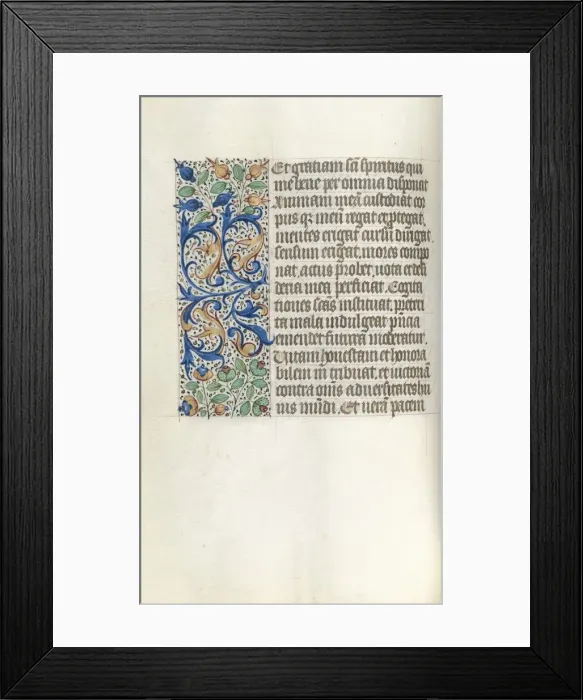 Et gratiam sci spiritus qui
me bene per omnia disponat
Animam meā custodiat cor
pus qz meū regat et ptegat,
mentes erigat cursū dirigat
sensum erigat, mores compo
nat, actus probet, uota et desi
deria mea perficiat. Cogita
tiones scas instituat, preteri
ta mala indulgeat, pñcia
emendet futura moderatur.
Uitam honestam et honora
bilem m tribuat, et uictoriā
contra oms aduersitates hu
ius mūdi. Et uerā pacem